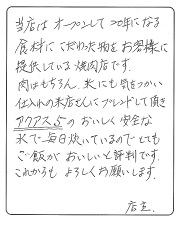 当店は オープンして20年になる
食材にこだわった物をお客様に
提供している焼肉店です。
肉はもちろん、米にも気をつかい
仕入れの米店さんにブレンドして頂き
アクアス5の おいしく安全な
水で毎日炊いているのでとても
ご飯がおいしいと評判です。
これからも よろしくお願いします。
店主